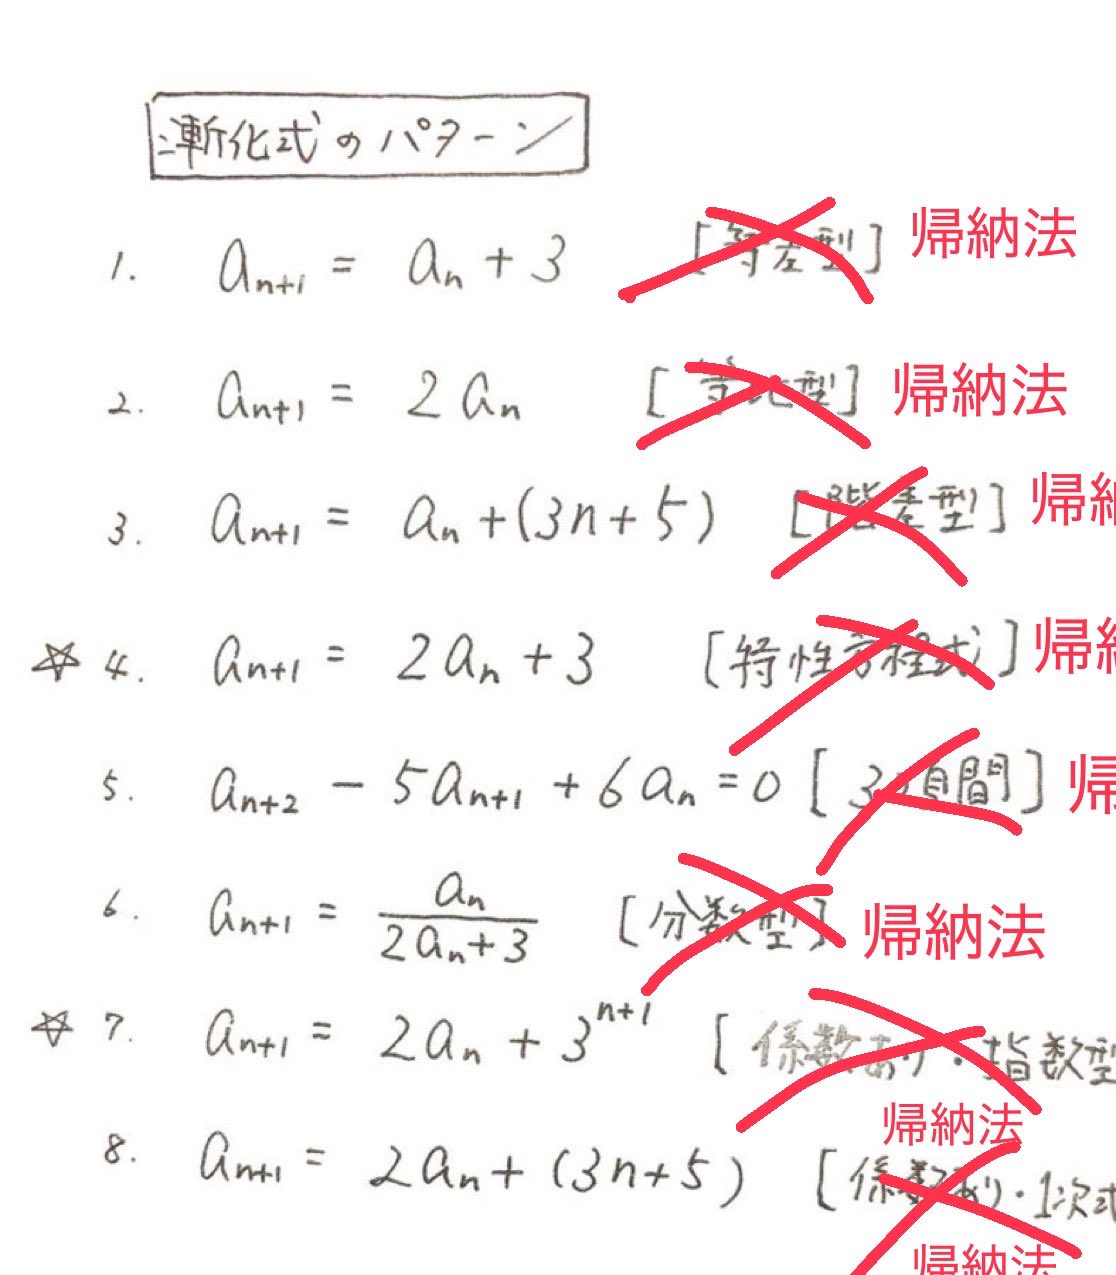 漸化式のパターン
1. a_{n+1} = a_n + 3 [等差型] 帰納法
2. a_{n+1} = 2a_n [等比型] 帰納法
3. a_{n+1} = a_n + (3n+5) [階差型] 帰納
☆ 4. a_{n+1} = 2a_n + 3 [特性方程式] 帰納
5. a_{n+2} - 5a_{n+1} + 6a_n = 0 [3項間] 帰
6. a_{n+1} = \frac{a_n}{2a_n+3} [分数型] 帰納法
☆ 7. a_{n+1} = 2a_n + 3^{n+1} [係数あり・指数型
帰納法
8. a_{n+1} = 2a_n + (3n+5) [係数あり・1次式
帰納法